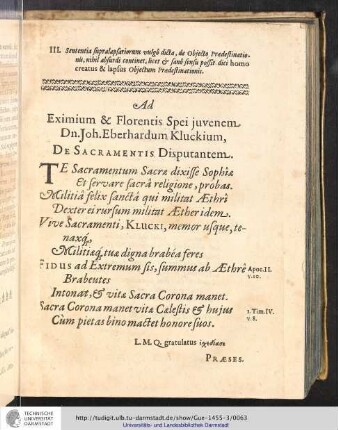 III. Sententia supralapsariorum vulgò dicta, de Objecto Prædestinatio-
nis, nihil absurdi continet, licet & sanô sensu possit dici homo
creatus & lapsus Objectum Prædestinationis.
Ad
Eximium & Florentis Spei juvenem
Dn. Joh. Eberhardum Kluckium,
DE SACRAMENTIS Disputantem.
TE Sacramentum Sacræ dixisse Sophiæ
Et servare sacrâ religione, probas.
Militiâ felix sanctâ qui militat Æthrî
Dexter ei rursum militat Æther idem.
Vive Sacramenti, KLUCKI, memor usque, te-
naxq́;
Militiæq́, tuæ digna brabéa feres
FIDUS ad Extremum sis, summus ab Æthrè Apoc. II.
v. 10.
Brabeutes
Intonat, & vitæ Sacra Corona manet.
Sacra Corona manet vitæ Cælestis & hujus 1. Tim. IV.
v. 8.
Cùm pietas bino mactet honore suos.
L. M. Q. gratulatus
PRÆSES.
TECHNISCHE
UNIVERSITÄT
DARMSTADT
http://tudigit.ulb.tu-darmstadt.de/show/Gue-1455-3/0063
Universitäts- und Landesbibliothek Darmstadt